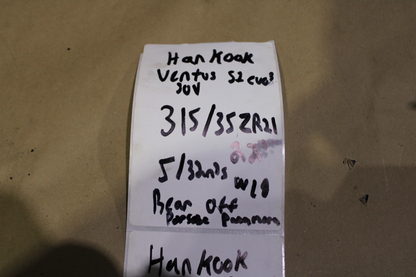 Hankook
Ventus S2 evo³
SUV
315/35ZR21
5/32nds
W19
Rear Off
Porsche Panamera
Hankook